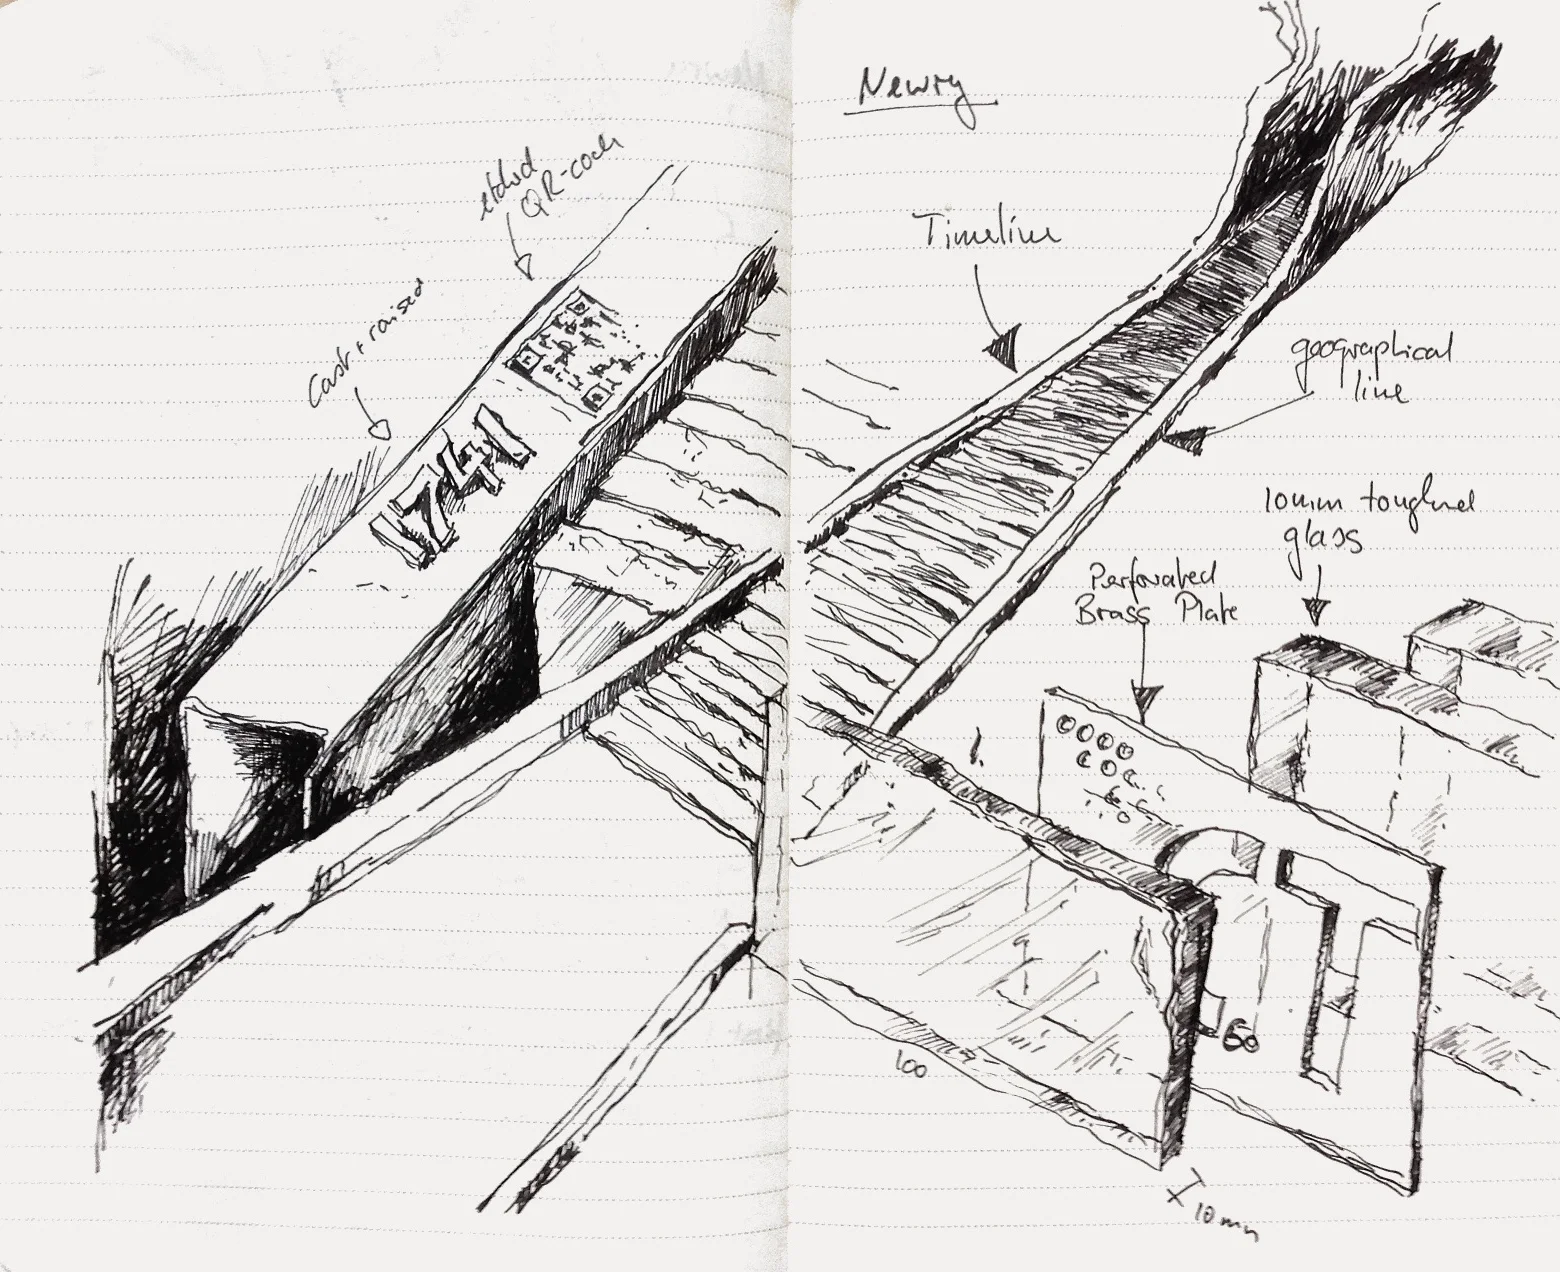 etched
QR-code
Cast + raised
1741
Newry
Timeline
geographical
line
10mm toughned
glass
Perforated
Brass Plate
100
60
10mm